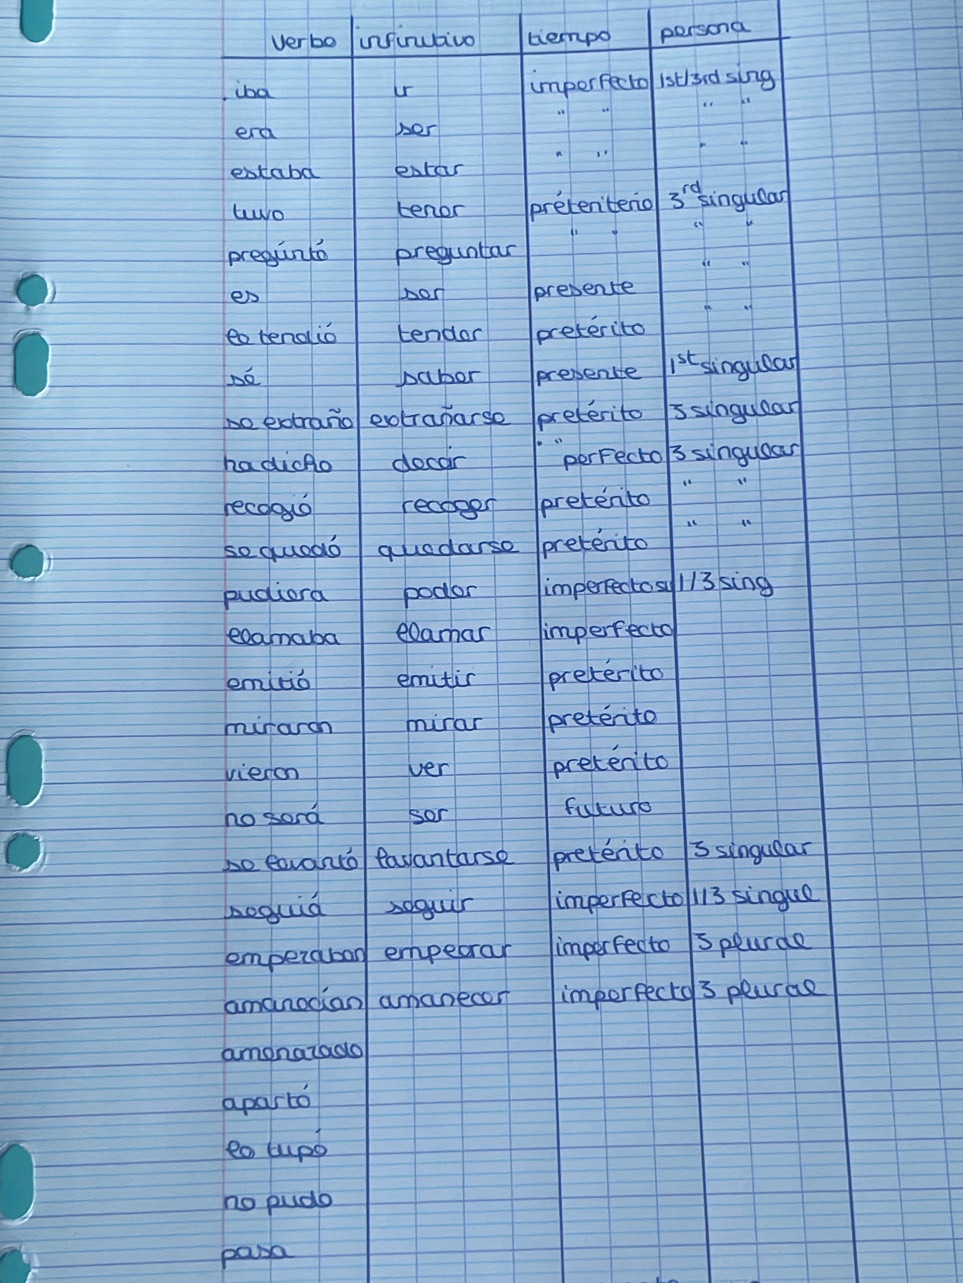 verbo infinitivo tiempo persona
iba ir imperfecto 1st/3rd sing
era ser " " " "
estaba estar " " " "
tuvo tener préteriterio 3rd singular
pregúntó preguntar " " " "
es ser presente " "
lo tendió tender pretérito " "
sé saber presente 1st singular
se extraño extrañarse pretérito 3 singular
ha dicho decir " perfecto 3 singular
recogió recoger pretérito " "
se quedó quedarse pretérito " "
pudiera poder imperfecto su 1/3 sing
llamaba llamar imperfecto
emitió emitir pretérito
miraron mirar pretérito
vieron ver pretérito
no será ser futuro
se levantó levantarse pretérito 3 singular
seguiá seguir imperfecto 1/3 singul
empezaban empezar imperfecto 3 plural
amanecían amanecer imperfecto 3 plural
amenazado
apartó
lo tupó
no pudo
pasa